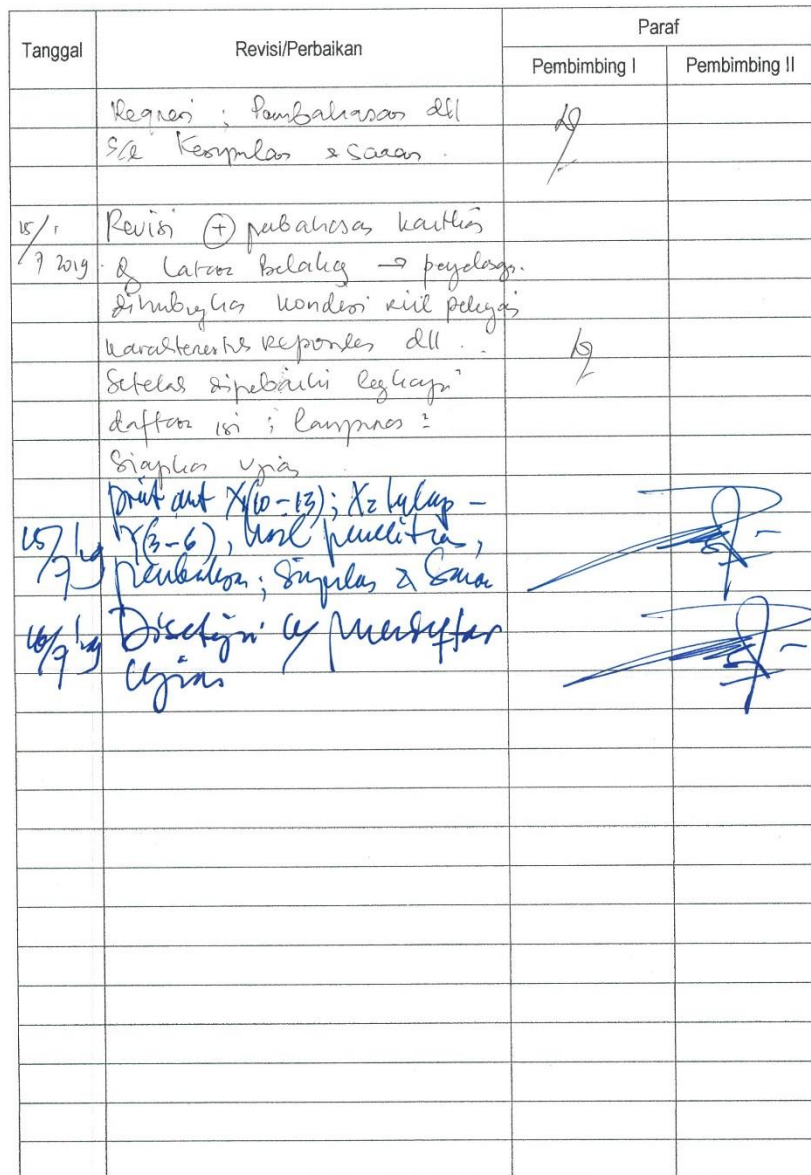 Tanggal Revisi/Perbaikan Paraf
Pembimbing I Pembimbing II
Regresi ; Pembahasan dll
s/d Kesimpulan & saran .
15/7 2019 Revisi + pembahasan kaitkan
dg Latar Belakg → 
dihubungkan kondisi riil
karakteristik responden dll ..
Setelah diperbaiki lengkapi
daftar isi ; lampiran 2
Siapkan ujian
print out X1(10-13); X2 
15/7 '19 Y(3-6), hasil penelitian,
pembahasan; Simpulan & Saran
16/7 '19 Disetujui u/ mendaftar
ujian